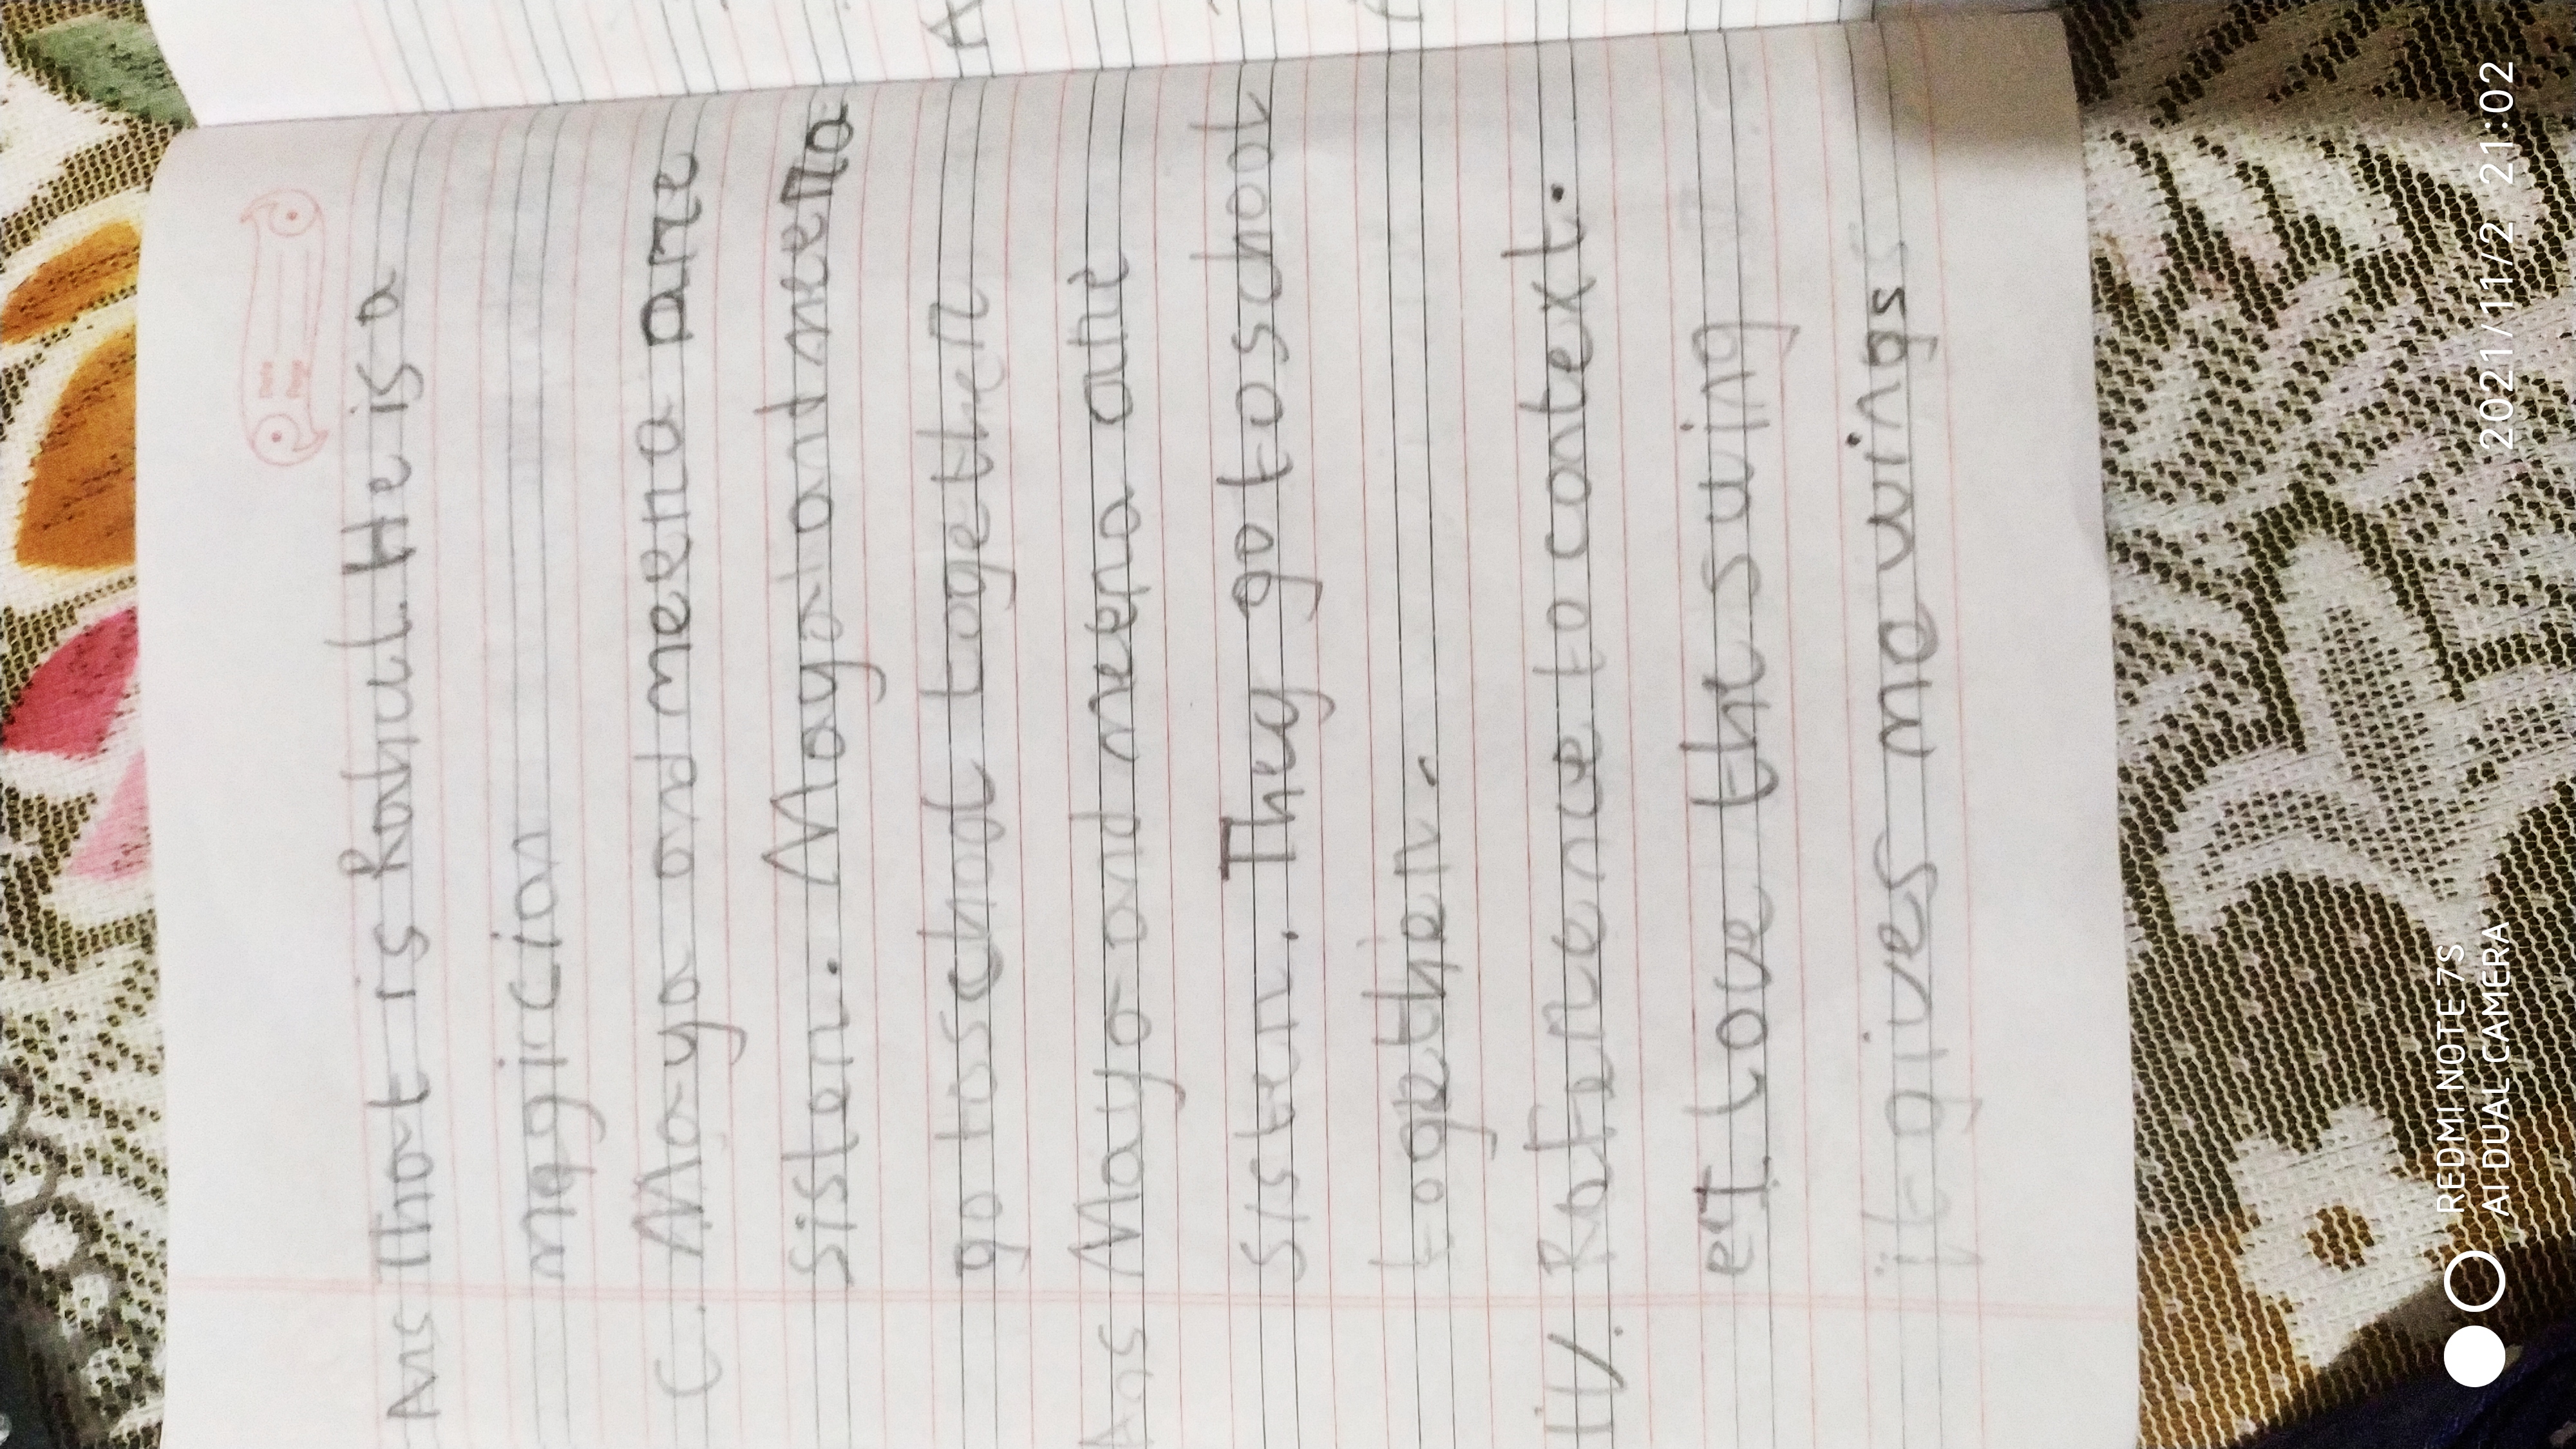 Ans That is Rahul. He is a
magician
C. Maya and meena are
sister. Maya and meena
go to school together
Ans Maya and meena are
sister. They go to school
together.
iv. Reference to context.
"I love the swing
it gives me wings
REDMI NOTE 7S
AI DUAL CAMERA
2021/11/2 21:02